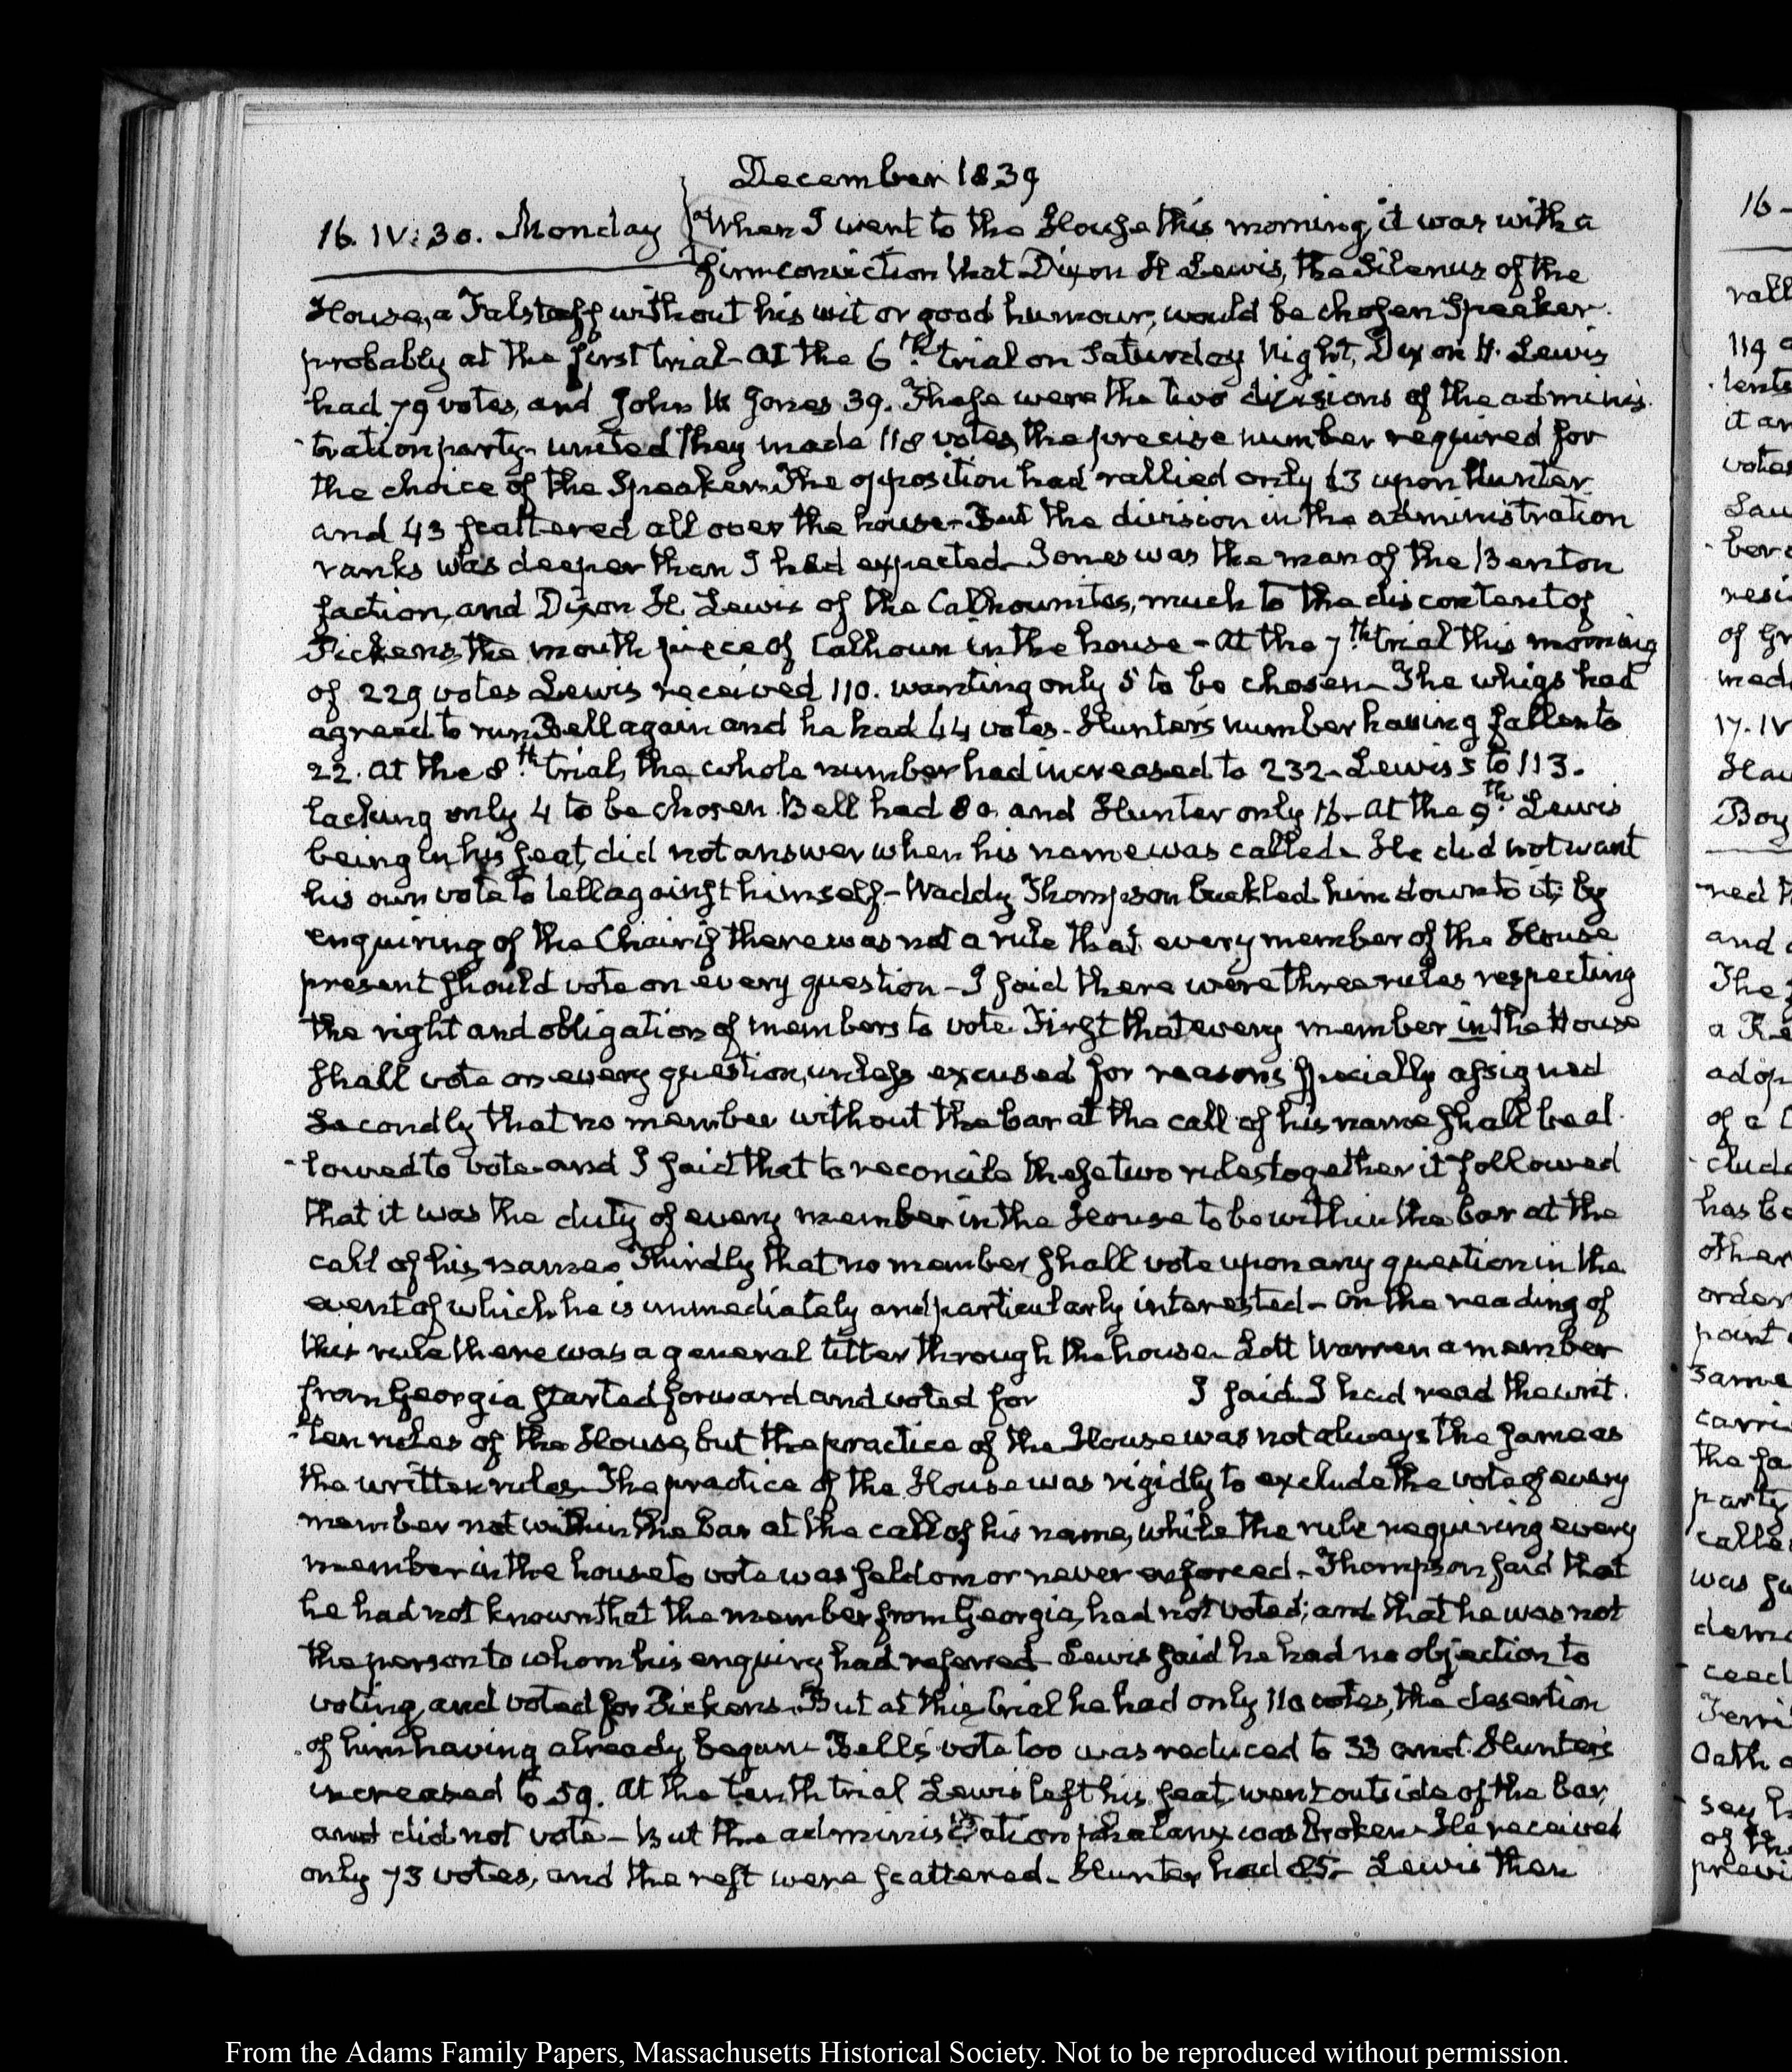 December 1839
16. IV: 30. Monday
When I went to the House this morning, it was with a
firm conviction that Dixon H Lewis, the Silenus of the
House, a Falstaff without his wit or good humour, would be chosen Speaker
probably at the first trial - At the 6th. trial on Saturday Night, Dixon H. Lewis
had 79 votes, and John W Jones 39. These were the two divisions of the adminis
-tration party - united they made 118 votes, the precise number required for
the choice of the Speaker. The opposition had rallied only 63 upon Hunter
and 43 scattered all over the house - But the division in the administration
ranks was deeper than I had expected - Jones was the man of the Benton
faction, and Dixon H. Lewis of the Calhounites, much to the discontent of
Pickens, the mouth piece of Calhoun in the house - At the 7th. trial this morning
of 229 votes Lewis received 110. wanting only 5 to be chosen - The whigs had
agreed to run Bell again and he had 64 votes - Hunter's number having fallen to
22. At the 8th. trial, the whole number had increased to 232 - Lewis's to 113.
lacking only 4 to be chosen. Bell had 80 and Hunter only 16 - At the 9th. Lewis
being in his seat, did not answer when his name was called - He did not want
his own vote to tell against himself - Waddy Thompson buckled him down to it; by
enquiring of the Chair if there was not a rule that every member of the House
present should vote on every question - I said there were three rules respecting
the right and obligation of members to vote. First that every member in the House
shall vote on every question, unless excused for reasons specially assigned
Secondly that no member without the bar at the call of his name shall be al
-lowed to vote - and I said that to reconcile these two rules together it followed
that it was the duty of every member in the House to be within the bar at the
call of his name - Thirdly that no member shall vote upon any question in the
event of which he is immediately and particularly interested - On the reading of
this rule there was a general titter through the house - Lott Warren a member
from Georgia started forward and voted for I said I had read the writ
-ten rules of the House, but the practice of the House was not always the same as
the written rules - The practice of the House was rigidly to exclude the vote of every
member not within the bar at the call of his name, while the rule requiring every
member in the house to vote was seldom or never enforced - Thompson said that
he had not known that the member from Georgia, had not voted; and that he was not
the person to whom his enquiry had referred - Lewis said he had no objection to
voting, and voted for Pickens - But at this trial he had only 110 votes, the desertion
of him having already begun - Bell's vote too was reduced to 33 and Hunter's
increased to 59. At the tenth trial Lewis left his seat went outside of the bar,
and did not vote - But the administration phalanx was broken - He received
only 73 votes, and the rest were scattered - Hunter had 85 - Lewis then
16
rall
119
lents
it
votes
Lau
ber
resi
of
med
17. IV
Hau
Boy
ned
and
The
a
adop
of a
clud
has
other
order
point
same
carri
the
party
calle
was
dem
ceed
Terri
Oath
say
of
previ
From the Adams Family Papers, Massachusetts Historical Society. Not to be reproduced without permission.